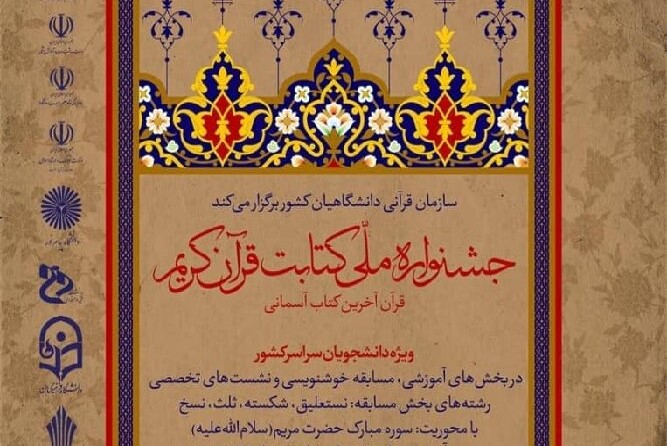 سازمان قرآنی دانشگاهیان کشور برگزار می‌کند
جشنواره ملّی کتابت قرآن کریم
قرآن آخرین کتاب آسمانی
ویژه دانشجویان سراسر کشور
در بخش های آموزشی، مسابقه خوشنویسی و نشست های تخصصی
رشته‌های بخش مسابقه: نستعلیق، شکسته، ثلث، نسخ
با محوریت: سوره مبارک حضرت مریم (سلام‌الله‌علیه)